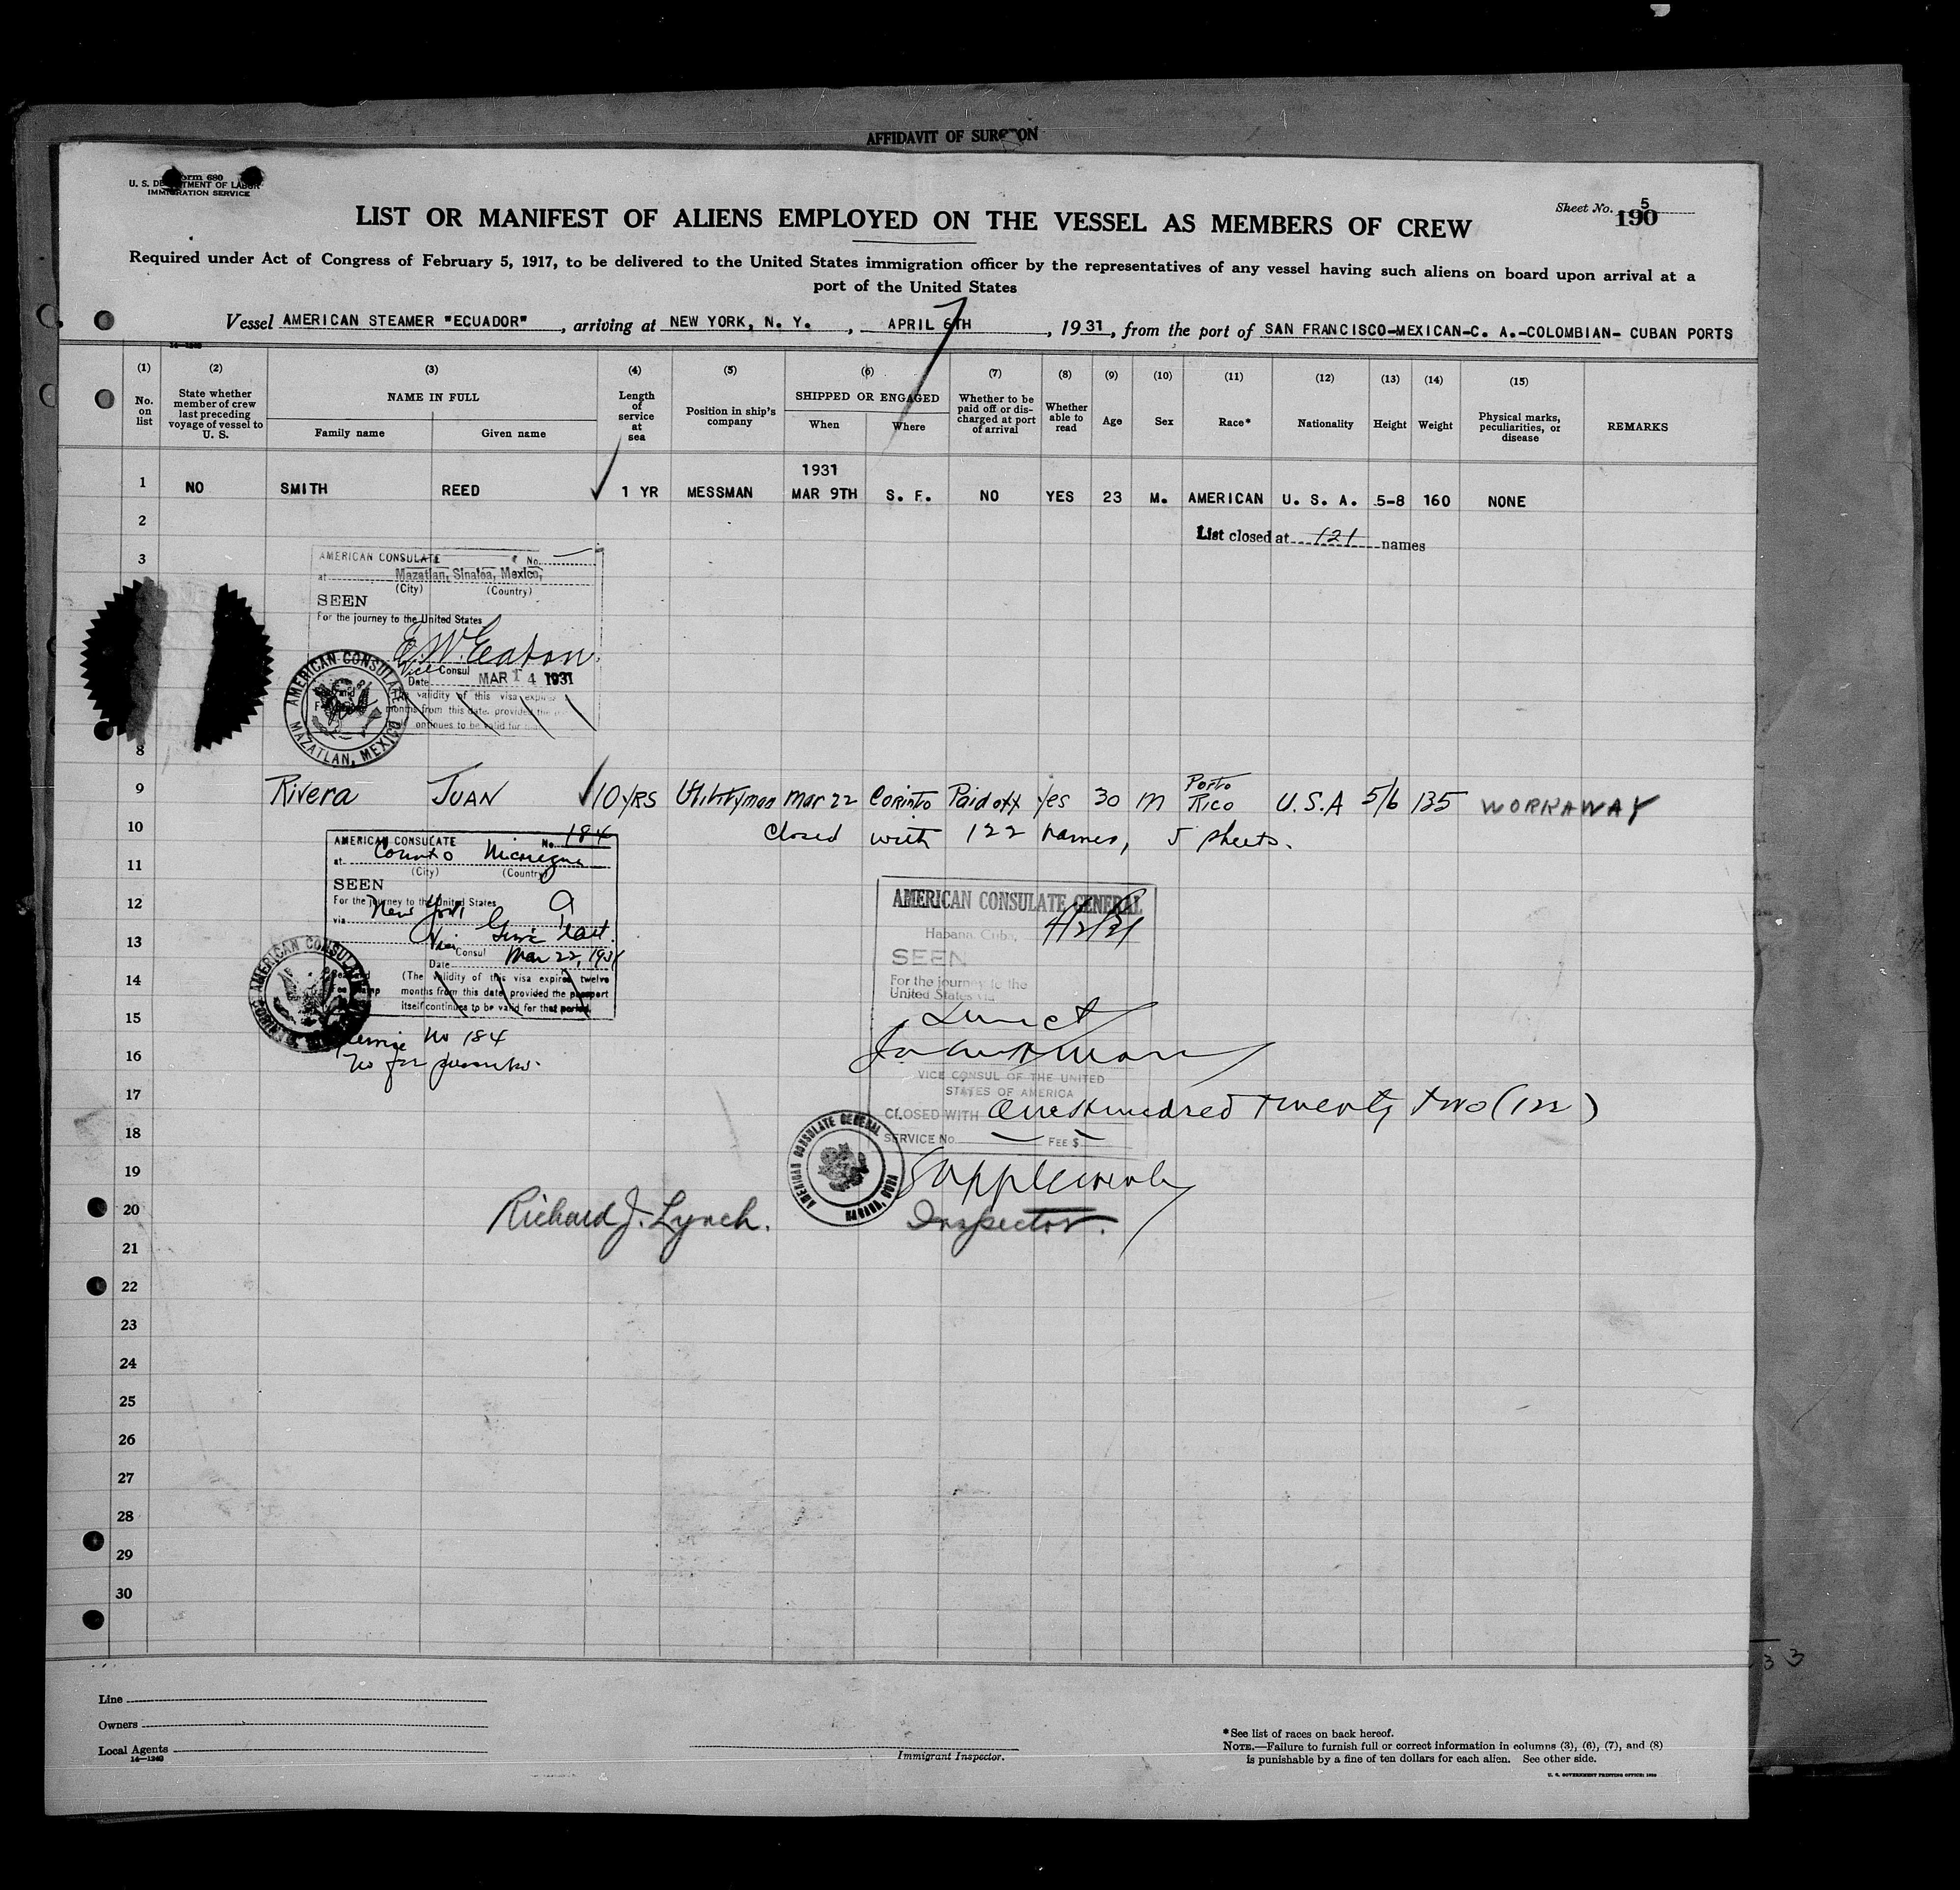 AFFIDAVIT OF SURGEON
Form 680
U. S. DEPARTMENT OF LABOR
IMMIGRATION SERVICE
Sheet No. 5
190
LIST OR MANIFEST OF ALIENS EMPLOYED ON THE VESSEL AS MEMBERS OF CREW
Required under Act of Congress of February 5, 1917, to be delivered to the United States immigration officer by the representatives of any vessel having such aliens on board upon arrival at a
port of the United States
Vessel AMERICAN STEAMER "ECUADOR", arriving at NEW YORK, N. Y., APRIL 6TH, 1931, from the port of SAN FRANCISCO-MEXICAN-C. A.-COLOMBIAN- CUBAN PORTS
14-1240
(1) (2) (3) (4) (5) (6) (7) (8) (9) (10) (11) (12) (13) (14) (15)
No. on list
State whether member of crew last preceding voyage of vessel to U. S.
NAME IN FULL
Family name
Given name
Length of service at sea
Position in ship's company
SHIPPED OR ENGAGED
When
Where
Whether to be paid off or discharged at port of arrival
Whether able to read
Age
Sex
Race*
Nationality
Height
Weight
Physical marks, peculiarities, or disease
REMARKS
1931
1 NO SMITH REED 1 YR MESSMAN MAR 9TH S. F. NO YES 23 M. AMERICAN U. S. A. 5-8 160 NONE
2
List closed at 121 names
3
AMERICAN CONSULATE No.
at Mazatlan, Sinaloa, Mexico,
(City) (Country)
SEEN
For the journey to the United States
E. W. Eaton
Vice Consul
Date MAR 14 1931
The validity of this visa expires
months from this date, provided the
continues to be valid for
AMERICAN CONSULATE MAZATLAN, MEXICO
8
9 Rivera JUAN 10 YRS Utilityman Mar 22 Corinto Paid off Yes 30 M Porto Rico U.S.A 5/6 135 WORKAWAY
10 Closed with 122 names, 5 sheets.
11
AMERICAN CONSULATE No. 184
at Corinto Nicaragua
(City) (Country)
SEEN
For the journey to the United States
via New York
Vice Consul
Date Mar 22, 1931
(The validity of this visa expires twelve
months from this date, provided the passport
itself continues to be valid for that period.
AMERICAN CONSULATE
Service No 184
No fee
AMERICAN CONSULATE GENERAL
Habana, Cuba, 4/2/31
SEEN
For the journey to the
United States via
Direct
VICE CONSUL OF THE UNITED
STATES OF AMERICA
CLOSED WITH One hundred twenty two (122)
SERVICE No. FEE $
AMERICAN CONSULATE GENERAL
12
13
14
15
16
17
18
19
20
Richard J. Lynch. Inspector.
21
22
23
24
25
26
27
28
29
30
33
Line
Owners
Local Agents
14-1240
Immigrant Inspector.
*See list of races on back hereof.
NOTE.—Failure to furnish full or correct information in columns (3), (6), (7), and (8)
is punishable by a fine of ten dollars for each alien. See other side.
U. S. GOVERNMENT PRINTING OFFICE: 1930